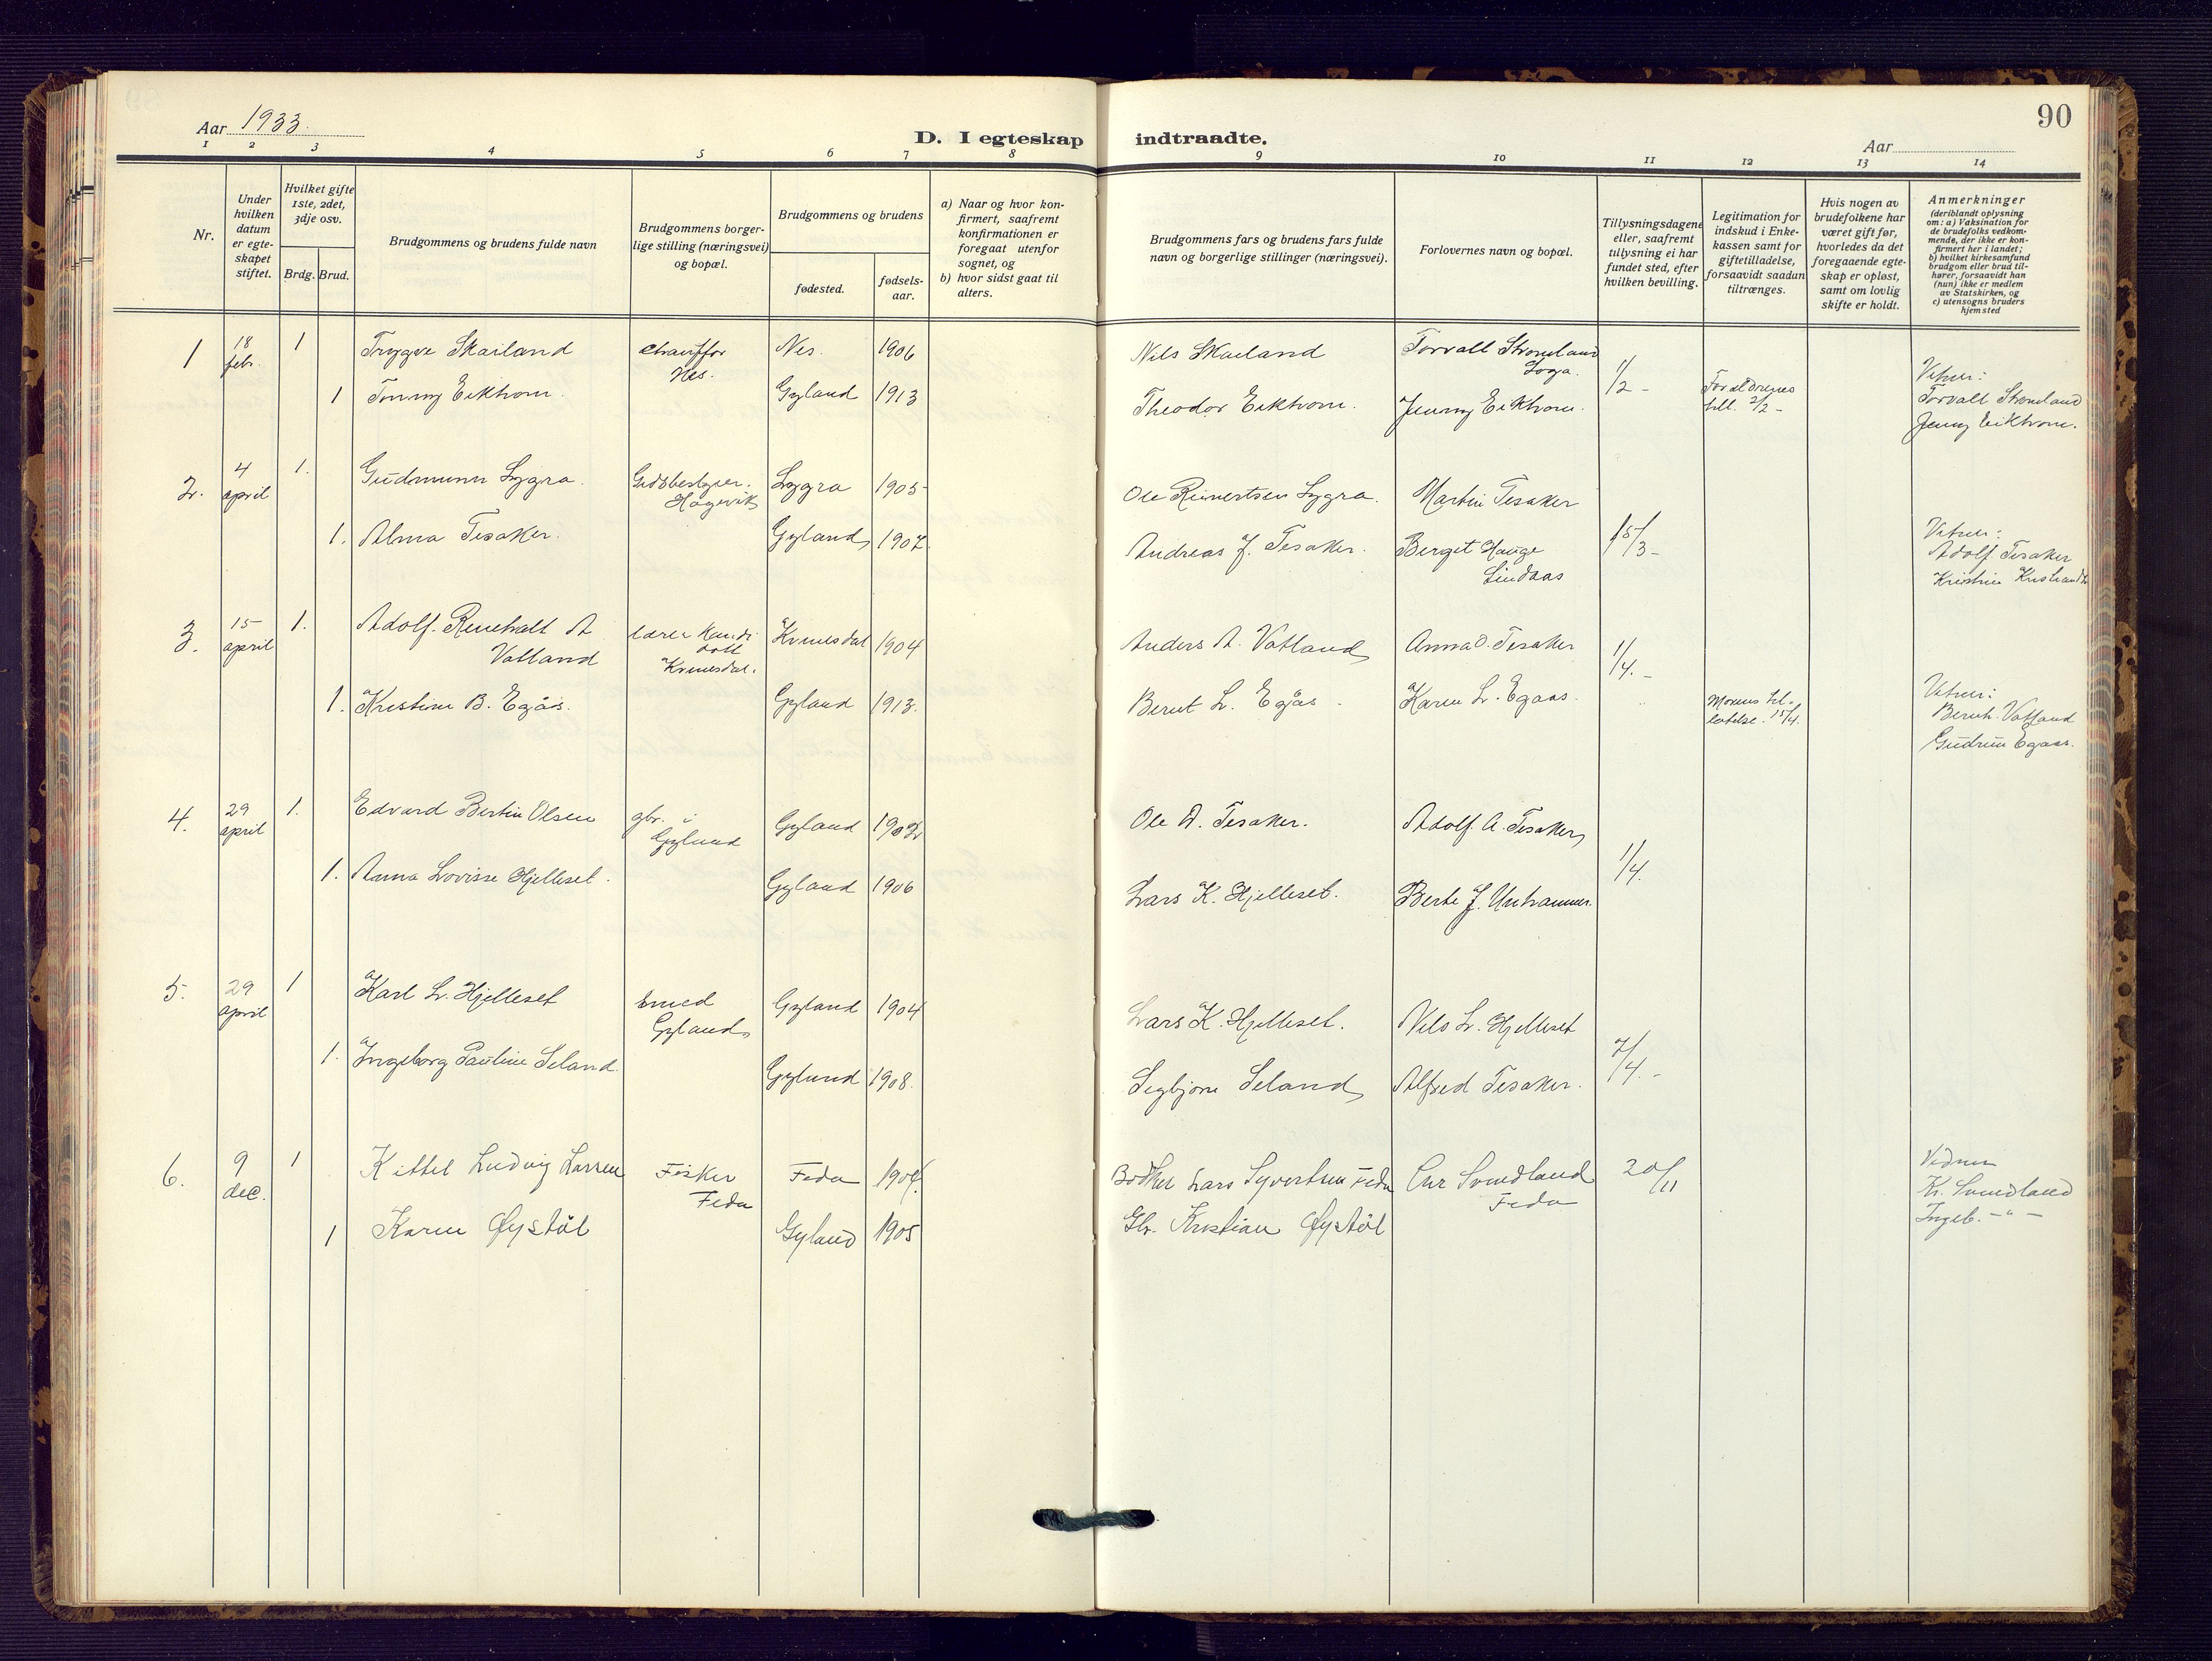 Aar 1933.
D. I egteskap indtraadte.
90
Aar
1 2 3 4 5 6 7 8 9 10 11 12 13 14
Nr.
Under hvilken datum er egteskapet stiftet.
Hvilket gifte 1ste, 2det, 3dje osv.
Brdg. Brud.
Brudgommens og brudens fulde navn
Brudgommens borgerlige stilling (næringsvei) og bopæl.
Brudgommens og brudens
fødested.
fødselsaar.
a) Naar og hvor konfirmert, saafremt konfirmationen er foregaat utenfor sognet, og
b) hvor sidst gaat til alters.
Brudgommens fars og brudens fars fulde navn og borgerlige stillinger (næringsvei).
Forlovernes navn og bopæl.
Tillysningsdagene eller, saafremt tillysning ei har fundet sted, efter hvilken bevilling.
Legitimation for indskud i Enkekassen samt for giftetilladelse, forsaavidt saadan tiltrænges.
Hvis nogen av brudefolkene har været gift før, hvorledes da det foregaaende egteskap er opløst, samt om lovlig skifte er holdt.
Anmerkninger
(deriblandt oplysning om: a) Vaksination for de brudefolks vedkommende, der ikke er konfirmert her i landet;
b) hvilket kirkesamfund brudgom eller brud tilhører, forsaavidt han (hun) ikke er medlem av Statskirken, og
c) utensogns bruders hjemsted
1 18 febr. 1 Trygve Skailand chauffør Nes. Nes. 1906 Nils Skailand Torvall Stromland Loga. 1/2 -
1 Tonny Eikhom. Gyland 1913 Theodor Eikhom. Jenny Eikhom. Forældrenes till. 2/2 - Vitner: Torvall Stromland Jenny Eikhom.
2. 4 april 1. Gudmunn Lygra. Gardsbestyrer. Høgevik Lygra 1905 Ole Reinertsen Lygra. Martin Tesaker
1. Alma Tesaker. Gyland 1907. Andreas J. Tesaker. Berget Hauge Lindaas 15/3 - Vitner: Adolf Tesaker Kristine
3. 15 april 1. Adolf Reinhalt A Vatland lærer kandidatt Kvinesdal. Kvinesdal 1904 Anders A. Vatland Anna O. Tesaker 1/4. -
1. Kristine B. Egås. Gyland 1913. Bernt L. Egås. Karen L. Egaas. Morens tillatelse. 15/4. Vitner: Bernh. Vatland Gudrun Egaas.
4. 29 april 1. Edvard Bertin Olsen gbr. i Gyland Gyland 1902 Ole A. Tesaker. Adolf A. Tesaker
1. Anna Lovisse Hjelleset. Gyland 1906 Lars K. Hjelleset. Berte J. Unhammer. 1/4.
5. 29 april 1 Karl L. Hjelleset smed Gyland Gyland 1904 Lars K. Hjelleset. Nils L. Hjelleset
1. Ingeborg Pauline Seland. Gyland 1908. Segbjørn Seland Alfred Tesaker. 2/4. -
6. 9 dec. 1 Kittel Ludvig Larsen Fisker Feda Feda 1904 Bødker Lars Syvertsen Feda Chr Svindland Feda 20/11 Vidner Kr. Svindland Ingeb. - " -
1 Karen Øystöl Gyland 1905 Gbr. Kristian Øystöl